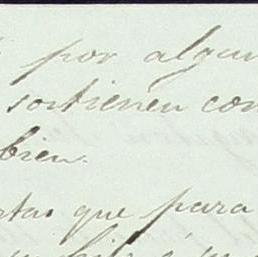 por algun
sostienen con
bien.
rtas que para